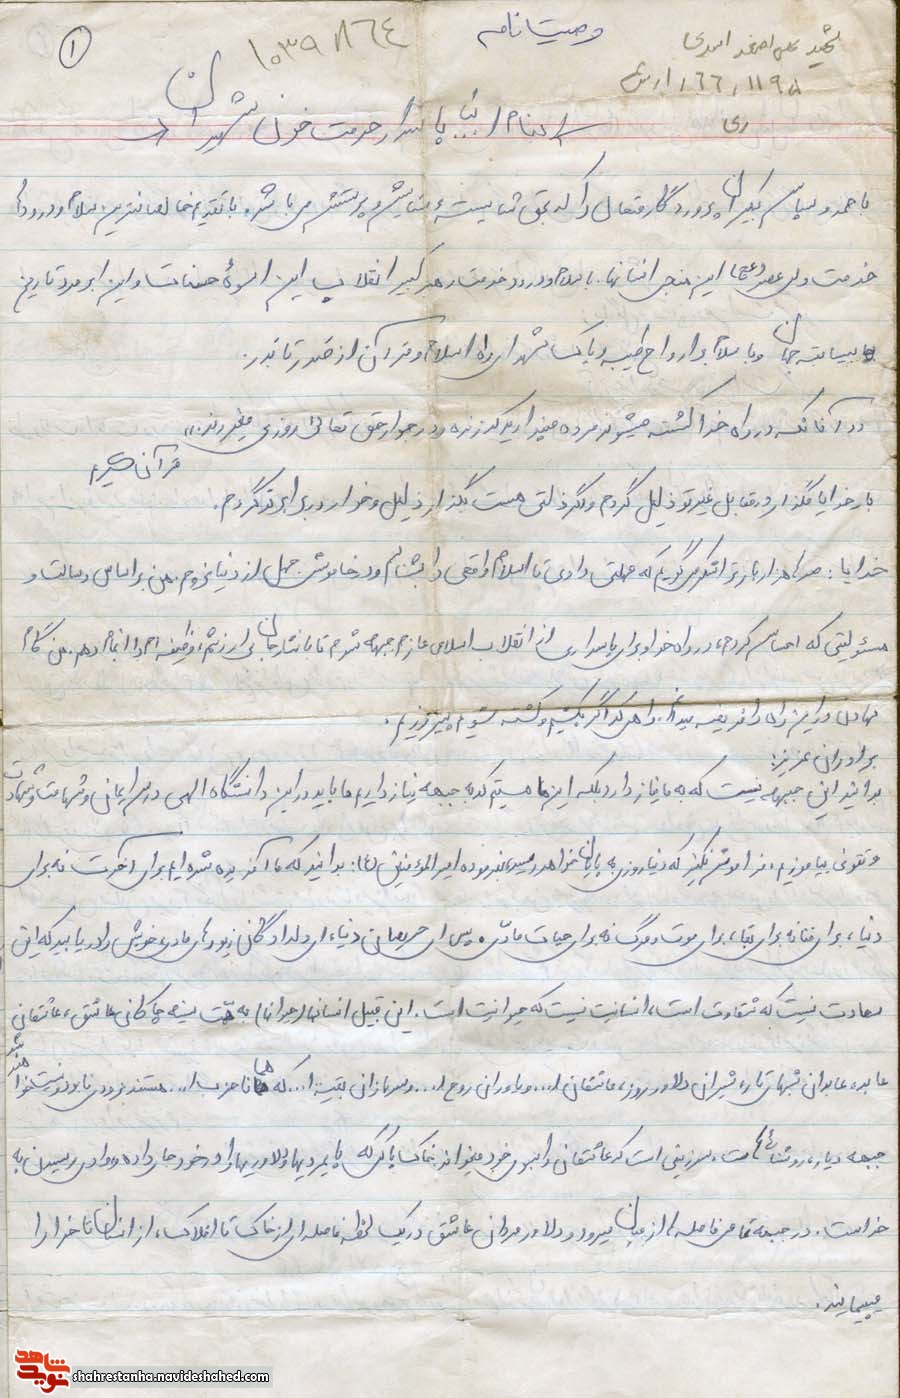 ۱
۱۰۳۹۸۶۴
وصیتنامه
شهید علی اصغر اسدی
ری
به نام پاسدار حرمت خون شهیدان
با حمد و سپاس بیکران پروردگار متعال را که بحق شایسته ستایش و پرستش می باشد. با تقدیم خالصانه‌ترین سلام و درودها
خدمت ولی عصر (عج) این منجی انسانها. با سلام و درود خدمت رهبر کبیر انقلاب این اسوهٔ حسنات و این ابرمرد تاریخ
بشریت جهان و با سلام بر ارواح طیبه و پاک شهدای راه اسلام و قرآن از صدر تا بدر.
آنانکه در راه خدا کشته میشوند مرده مپندارید بلکه زنده و در جوار حق تعالی روزی میخورند.»
قرآن کریم
بار خدایا مگذار در مقابل غیر تو ذلیل گردم و اگر ذلتی هست بگذار ذلیل و خوار در برابر تو گردم.
خدایا: صدها هزار بار ترا شکر می گویم که مهلتی دادی تا اسلام واقعی را بشناسم و در خاموشی جهل از دنیا نروم. من بر اساس رسالت و
مسئولیتی که احساس کردم، در راه خدا و برای پاسداری از انقلاب اسلامی عازم جبهه شدم تا با نثار جان بی ارزشم، وظیفه ام را انجام دهم. من گام
نهادن در این راه را فریضه میدانم. راهی که اگر بکشیم و کشته شویم پیروزیم.
برادران عزیز:
بدانید این جبهه نیست که به ما نیاز دارد بلکه این ما هستیم که به جبهه نیاز داریم ما باید در این دانشگاه الهی درس ایمانی و شهامت و شهادت
و تقوی بیاموزیم، فراموش نکنیم که دنیا روزی به پایان خواهد رسید، بفرموده امیرالمؤمنین (ع): بدانید که ما آفریده شده ایم برای آخرت نه برای
دنیا، برای فنا نه برای بقا، برای موت و مرگ نه برای حیات مادی. پس ای حریصان دنیا، ای دلدادگان زیورهای مادی، خویش را دریابید که این
سعادت نیست که شقاوت است، انسانیت نیست که حیوانیت است. این قبیل انسانها را هدایت به جبهه عاشق، عاشقانی
عابد، عابدان شبهای تار، شیران دلاور روز، عاشقان ا... و یاوران روح ا... و سربازان بقیة ا... که همانا حزب ا... هستند بزودی نابود و نیست خواهند شد
جبهه دیار روشنائی هاست، سرزمینی است که عاشقان را بسوی خود میخواند، خاک پاکی که پایمردیها و دلاوریها را در خود جا داده و وادی رسیدن به
خداست. در جبهه تمامی فاصله ها از میان میرود و دلاورمردان عاشق در یک لحظه فاصله ای از خاک تا افلاک، از انسان تا خدا را
میپیمایند.
نوید شاهد
shahrestanha.navideshahed.com